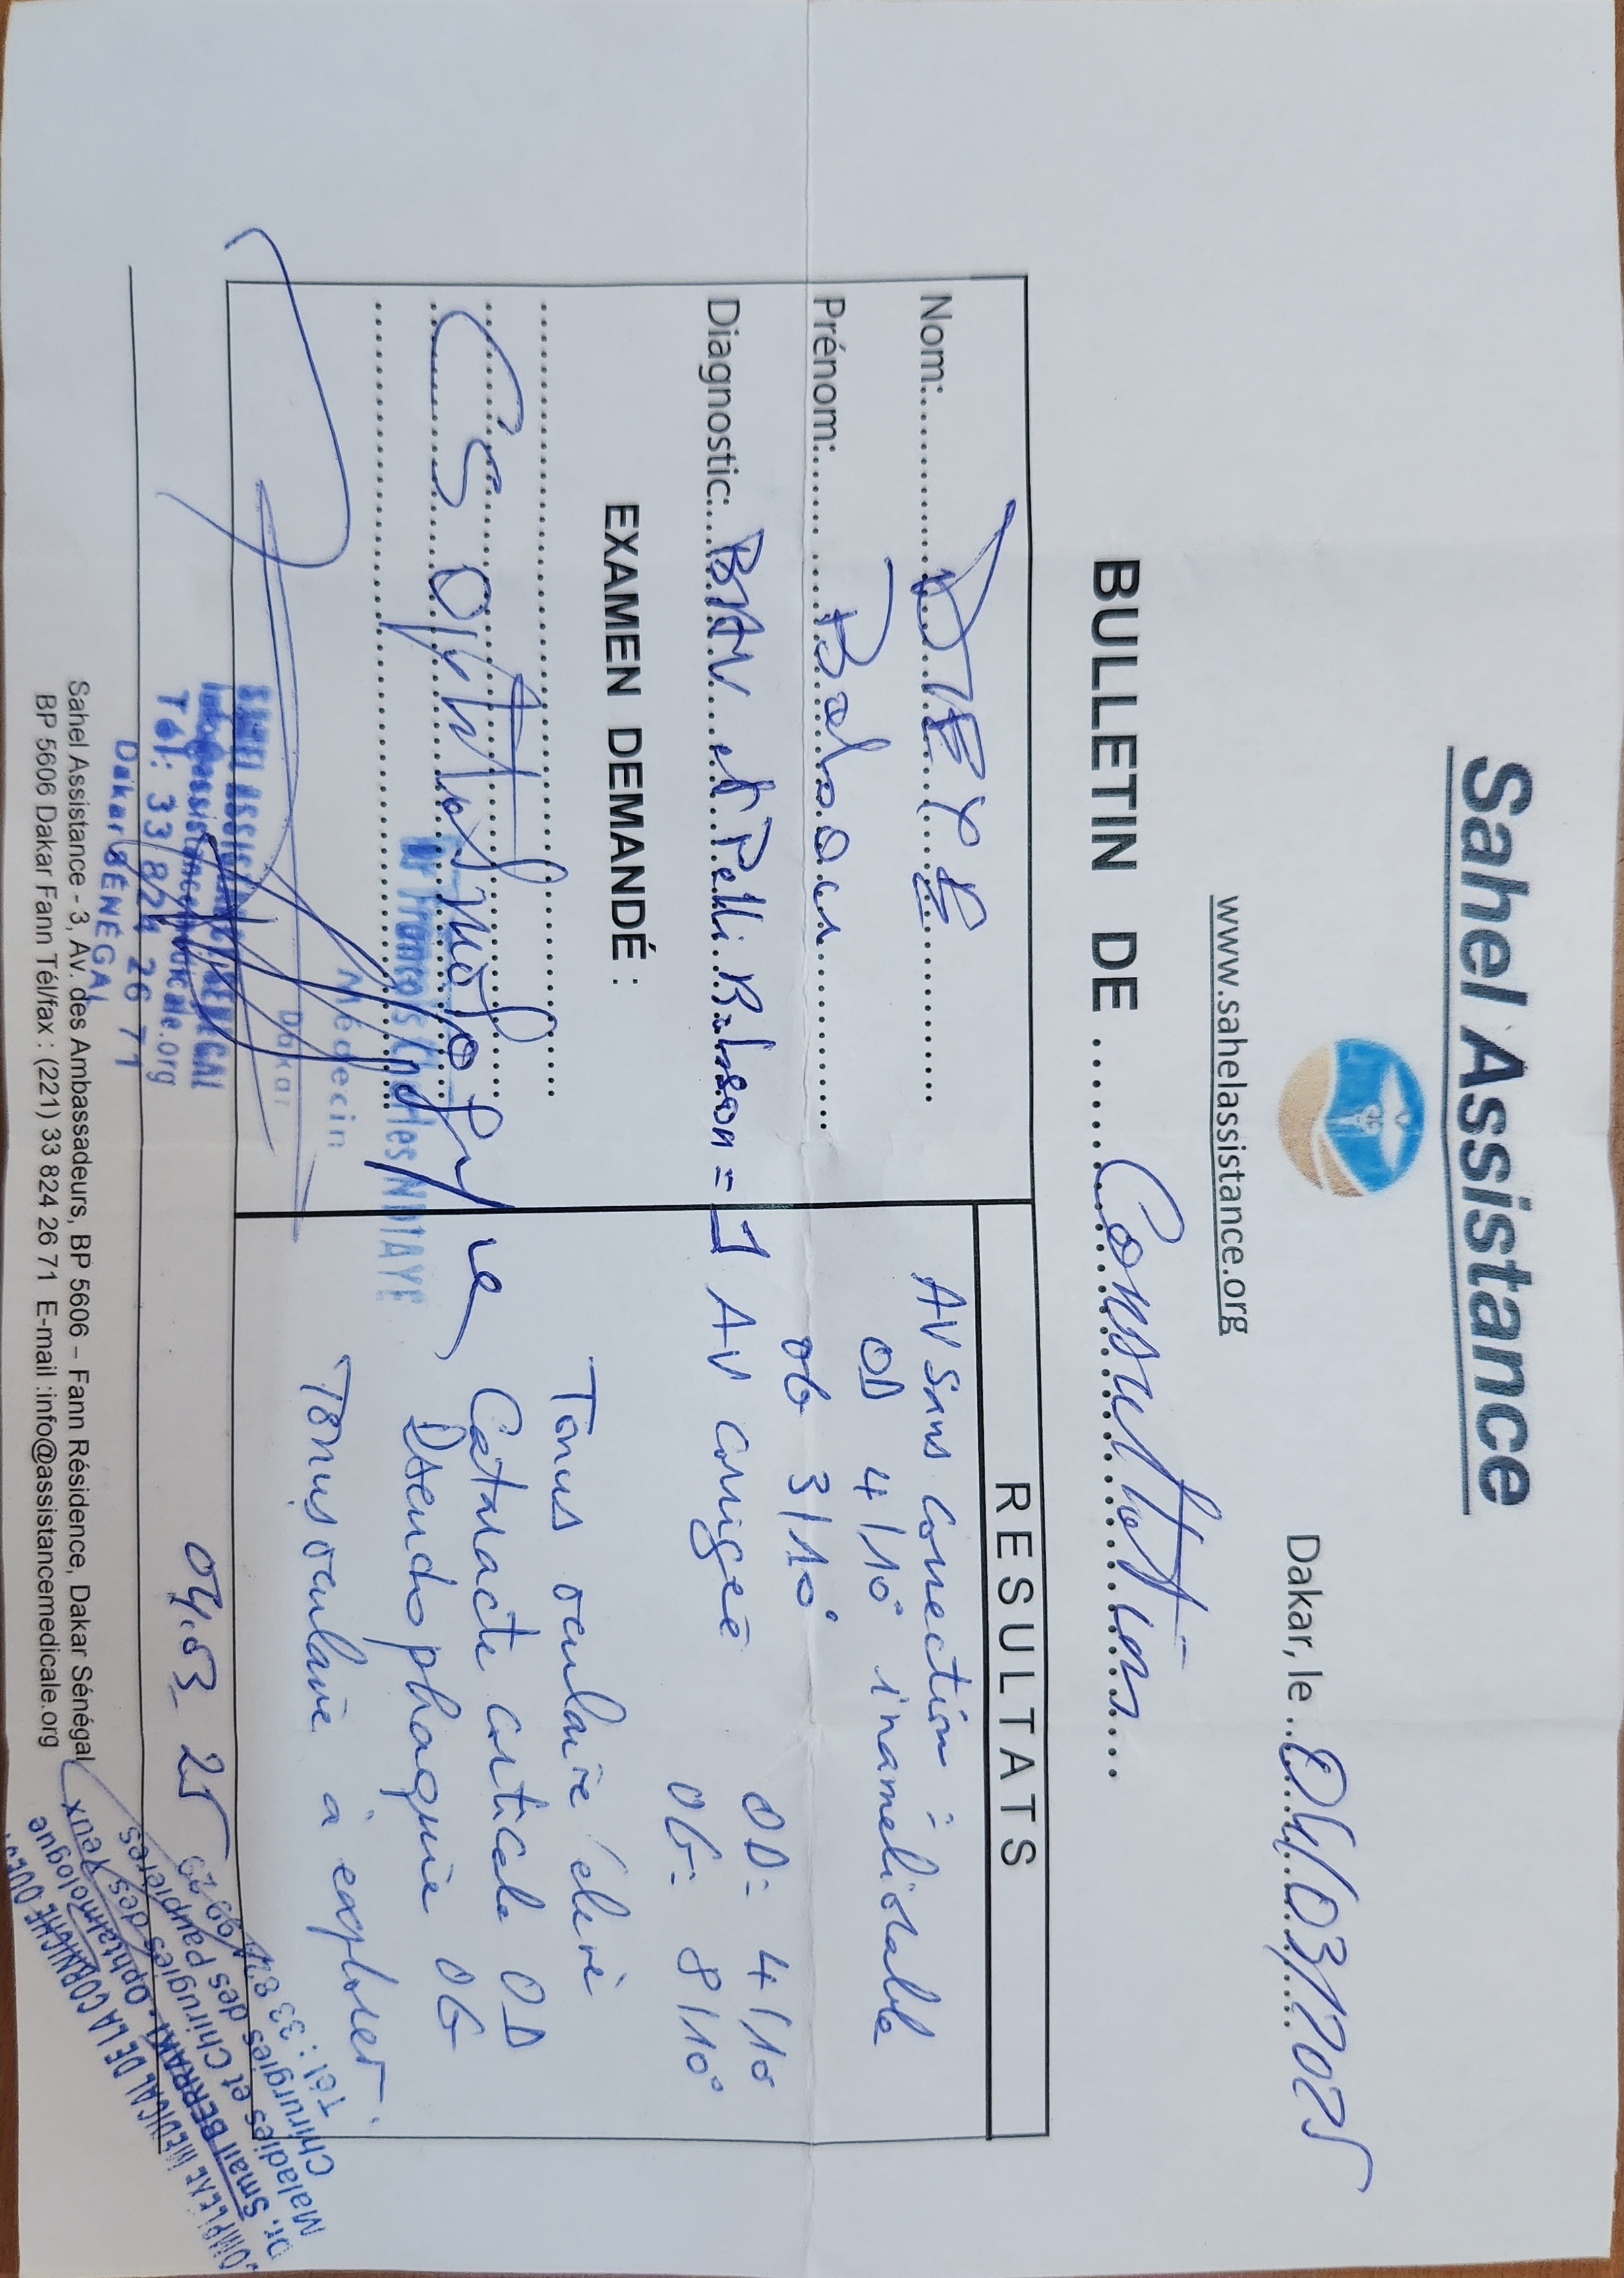 Sahel Assistance
www.sahelassistance.org
Dakar, le ...04/03/2025
BULLETIN DE ...... Consultation ...
Nom:......... DIEYE
Prénom:...... Babacar
Diagnostic:... BAV et Pelli Robson = 1
EXAMEN DEMANDÉ :
CS Ophtalmologique
Dr François Charles NDIAYE
Médecin
Dakar
SAHEL ASSISTANCE MEDICAL
Tél: 33 824 26 71
Dakar SÉNÉGAL
RESULTATS
AV sans correction :
OD 4/10° inameliorable
OG 3/10°
AV corrigée OD: 4/10
OG: 8/10°
Tonus oculaire élevé
Cataracte corticale OD
Pseudophaquie OG
Tonus oculaire à explorer.
04.03.25
COMPLEXE MÉDICAL DE LA CORNICHE OUEST
Dr. Smail BERRAKI - Ophtalmologue
Maladies et Chirurgies des Yeux
Chirurgies des Paupières
Sahel Assistance - 3, Av. des Ambassadeurs, BP 5606 – Fann Résidence, Dakar Sénégal
BP 5606 Dakar Fann Tél/fax : (221) 33 824 26 71 E-mail :info@assistancemedicale.org